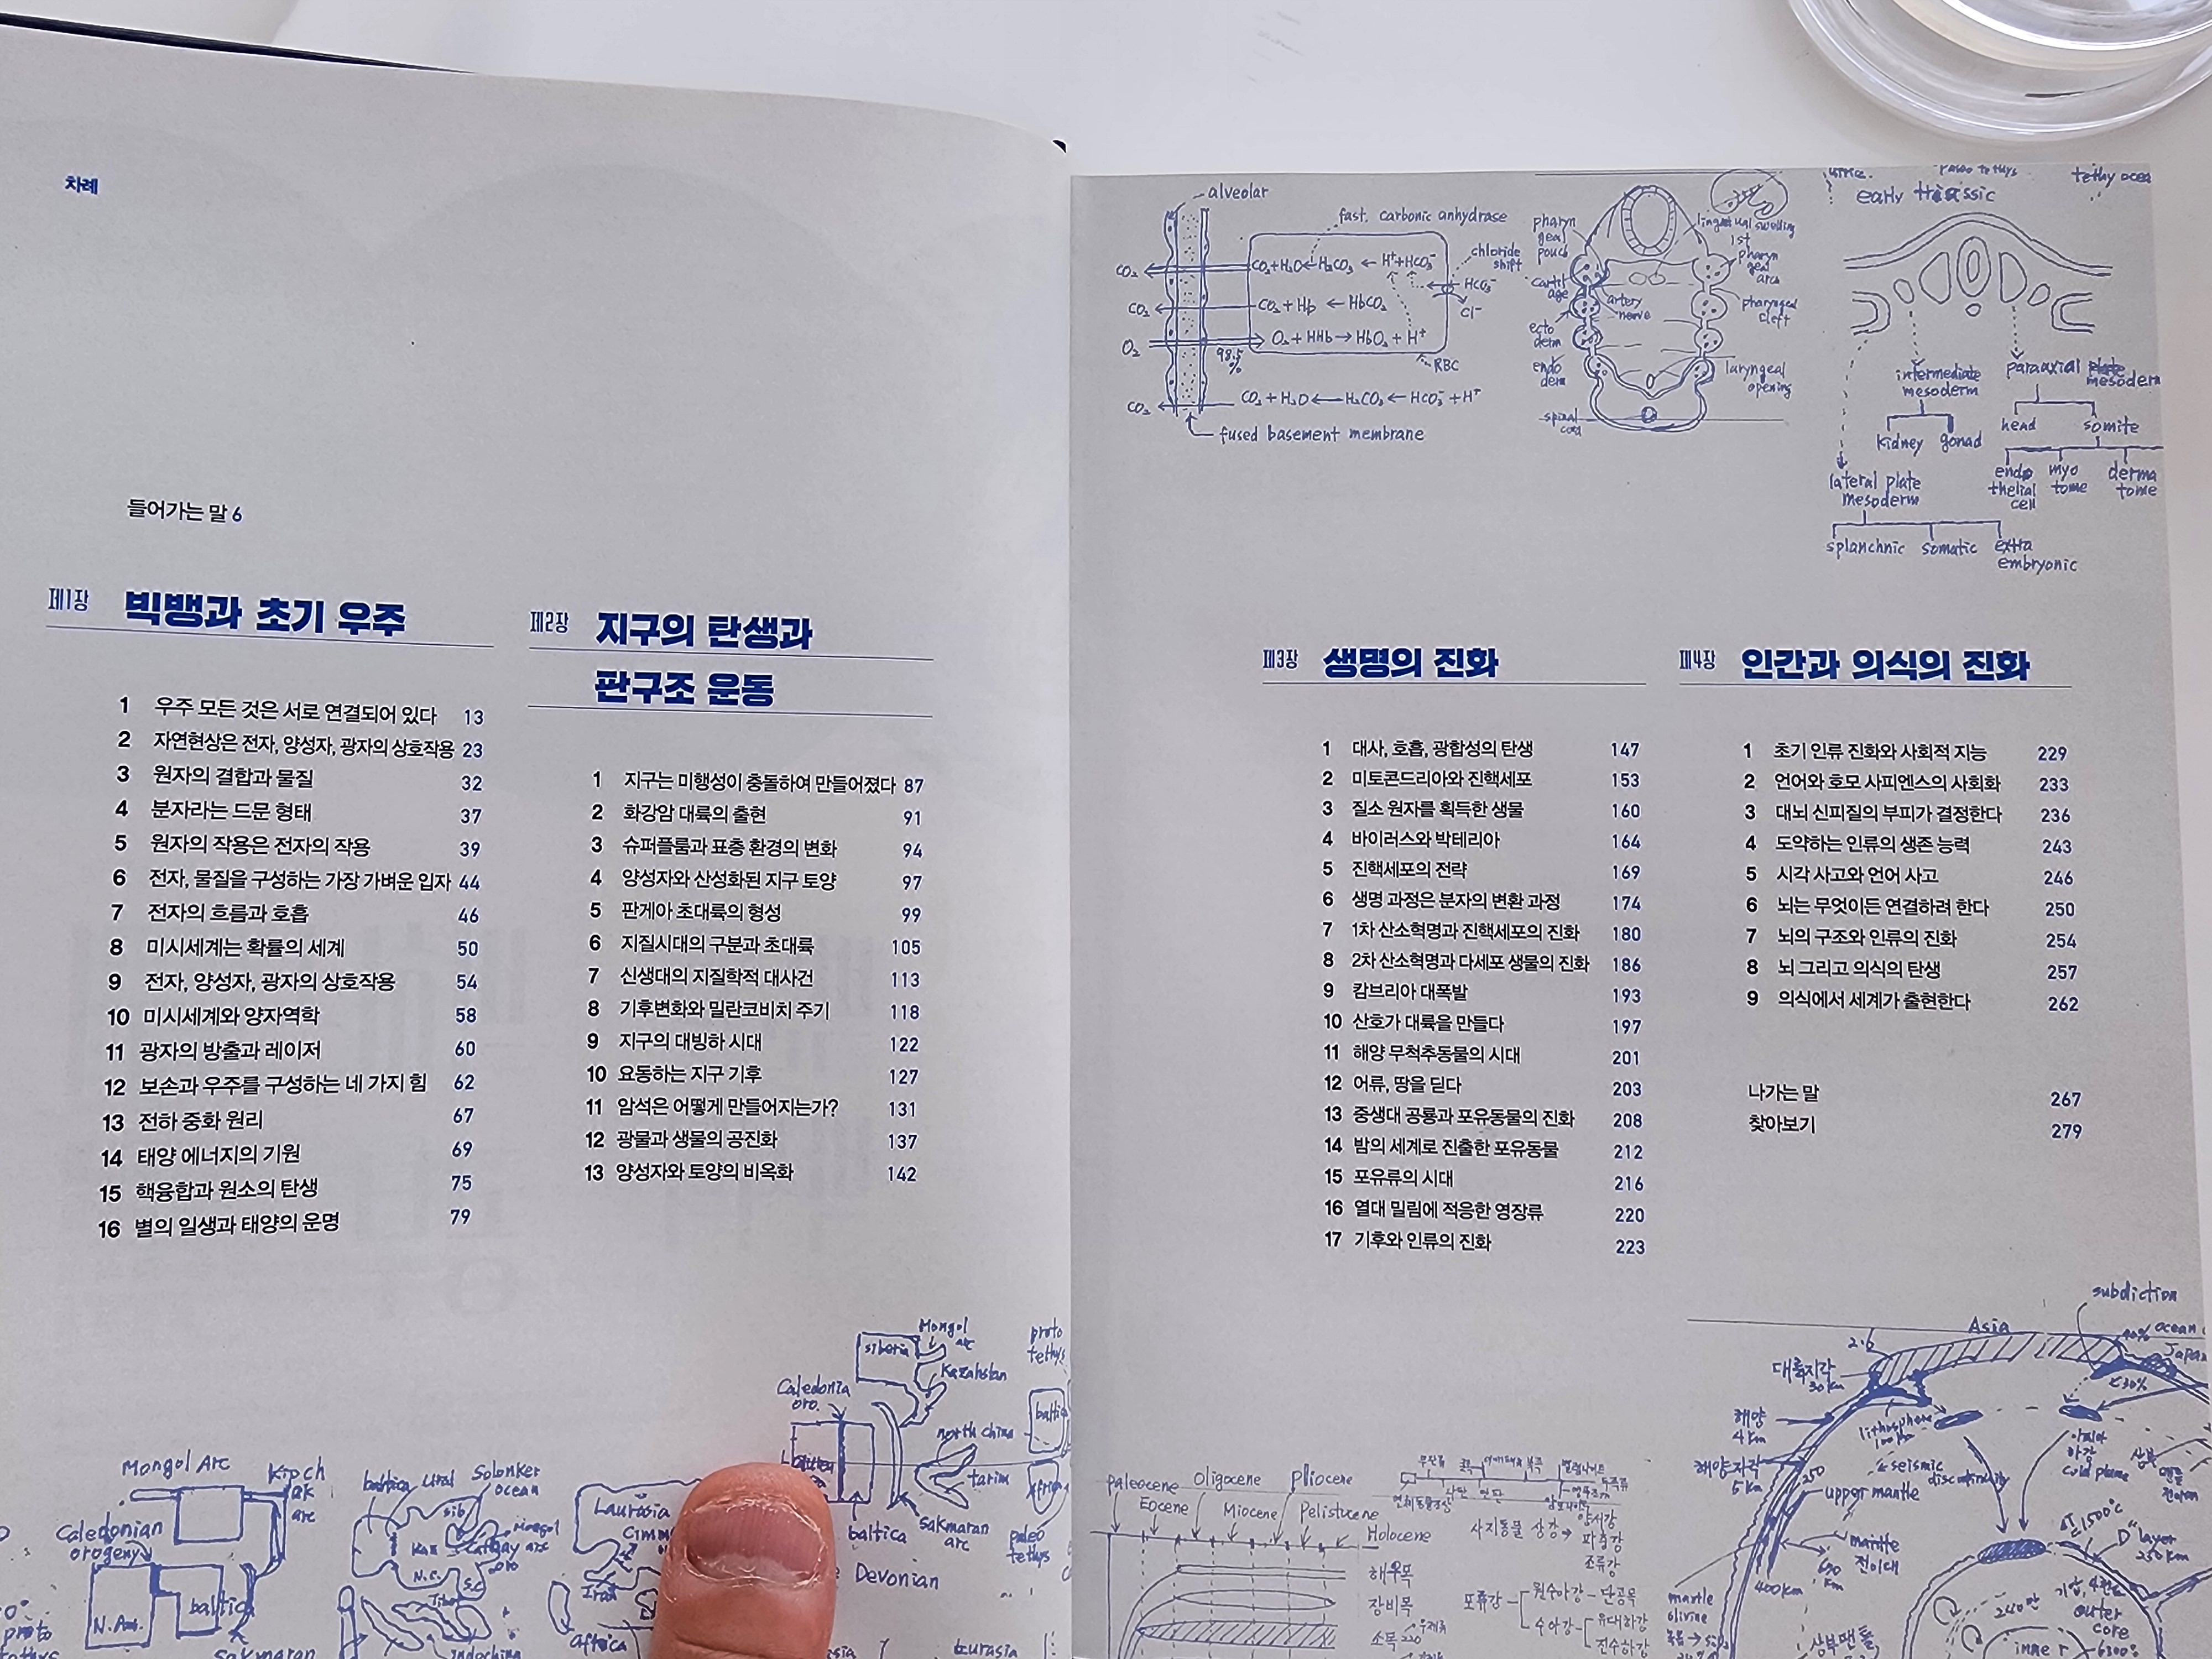 차례
들어가는 말 6
제1장 빅뱅과 초기 우주
1 우주 모든 것은 서로 연결되어 있다 13
2 자연현상은 전자, 양성자, 광자의 상호작용 23
3 원자의 결합과 물질 32
4 분자라는 드문 형태 37
5 원자의 작용은 전자의 작용 39
6 전자, 물질을 구성하는 가장 가벼운 입자 44
7 전자의 흐름과 호흡 46
8 미시세계는 확률의 세계 50
9 전자, 양성자, 광자의 상호작용 54
10 미시세계와 양자역학 58
11 광자의 방출과 레이저 60
12 보손과 우주를 구성하는 네 가지 힘 62
13 전하 중화 원리 67
14 태양 에너지의 기원 69
15 핵융합과 원소의 탄생 75
16 별의 일생과 태양의 운명 79
제2장 지구의 탄생과
판구조 운동
1 지구는 미행성이 충돌하여 만들어졌다 87
2 화강암 대륙의 출현 91
3 슈퍼플룸과 표층 환경의 변화 94
4 양성자와 산성화된 지구 토양 97
5 판게아 초대륙의 형성 99
6 지질시대의 구분과 초대륙 105
7 신생대의 지질학적 대사건 113
8 기후변화와 밀란코비치 주기 118
9 지구의 대빙하 시대 122
10 요동하는 지구 기후 127
11 암석은 어떻게 만들어지는가? 131
12 광물과 생물의 공진화 137
13 양성자와 토양의 비옥화 142
Mongol Arc
Kipch
ak
arc
Caledonian
orogeny
N.Am.
baltica
sakmaran
proto
tethys
baltica
Ural
Solonker
ocean
sib
N.C.
S.C.
indochina
Laurasia
Iran
africa
Siberia
Mongol
arc
Kazahstan
Caledonia
oro.
north china
tarim
baltica
sakmaran
arc
Devonian
proto
tethys
paleo
tethys
Eurasia
alveolar
fast. carbonic anhydrase
chloride
shift
CO₂ CO₂+H₂O←H₂CO₃ ← H⁺+HCO₃⁻
HCO₃⁻
Cl⁻
CO₂ CO₂+Hb ← HbCO₂
O₂ O₂+HHb→HbO₂+H⁺
98.5
%
RBC
CO₂ CO₂+H₂O←H₂CO₃←HCO₃⁻+H⁺
fused basement membrane
pharyn
geal
pouch
lingual swelling
1st
pharyn
geal
arc
cartil
age
artery
nerve
pharyngeal
cleft
ecto
derm
endo
derm
laryngeal
opening
spinal
cord
early triassic
intermediate
mesoderm
kidney gonad
paraaxial
mesoderm
head somite
endo
thelial
cell
myo
tome
derma
tome
lateral plate
mesoderm
splanchnic somatic extra
embryonic
제3장 생명의 진화
1 대사, 호흡, 광합성의 탄생 147
2 미토콘드리아와 진핵세포 153
3 질소 원자를 획득한 생물 160
4 바이러스와 박테리아 164
5 진핵세포의 전략 169
6 생명 과정은 분자의 변환 과정 174
7 1차 산소혁명과 진핵세포의 진화 180
8 2차 산소혁명과 다세포 생물의 진화 186
9 캄브리아 대폭발 193
10 산호가 대륙을 만들다 197
11 해양 무척추동물의 시대 201
12 어류, 땅을 딛다 203
13 중생대 공룡과 포유동물의 진화 208
14 밤의 세계로 진출한 포유동물 212
15 포유류의 시대 216
16 열대 밀림에 적응한 영장류 220
17 기후와 인류의 진화 223
제4장 인간과 의식의 진화
1 초기 인류 진화와 사회적 지능 229
2 언어와 호모 사피엔스의 사회화 233
3 대뇌 신피질의 부피가 결정한다 236
4 도약하는 인류의 생존 능력 243
5 시각 사고와 언어 사고 246
6 뇌는 무엇이든 연결하려 한다 250
7 뇌의 구조와 인류의 진화 254
8 뇌 그리고 의식의 탄생 257
9 의식에서 세계가 출현한다 262
나가는 말 267
찾아보기 279
Paleocene
Eocene
Oligocene
Miocene
Pliocene
Pelistocene
Holocene
해우목
장비목
소목
사지동물 상강
양서강
파충강
조류강
포유강
원수아강 단공목
수아강
유대하강
진수하강
subdiction
Asia
ocean
Japan
대륙지각
30km
해양
4km
해양지각
5km
lithosphere
100km
seismic
discontinuity
upper mantle
mantle
전이대
400km
cold plume
ΔT
1500℃
D" layer
250km
mantle
olivine
상부맨틀
outer
core
inner